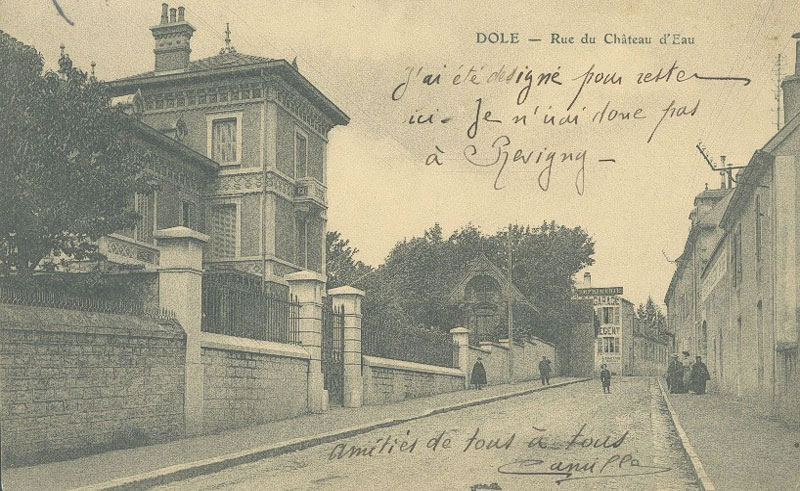 DOLE — Rue du Château d'Eau
J'ai été designé pour rester
ici. Je n'irai donc pas
à Revigny —
GARAGE
Amitiés de tous à tous
Camille